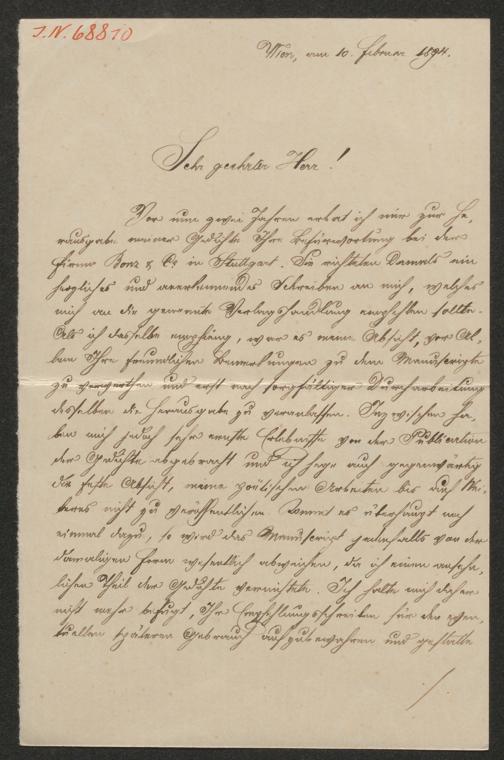 J.N. 68810
Wien, am 10. Februar 1894.
Sehr geehrter Herr!
Vor nun zwei Jahren erbat ich mir zur He-
rausgabe meiner Gedichte Ihre Befürwortung bei der
Firma Bonz & Co in Stuttgart. Sie richteten damals ein
herzliches und anerkennendes Schreiben an mich, welches
mich an die genannte Verlagshandlung empfehlen sollte.
Als ich dasselbe empfieng, war es meine Absicht, vor Al-
lem Ihre freundlichen Bemerkungen zu dem Manuscripte
zu verwerthen und erst nach sorgfältiger Durcharbeitung
desselben die Herausgabe zu veranlassen. Inzwischen ha-
ben mich jedoch sehr ernste Erlebnisse von der Publication
der Gedichte abgebracht und ich hege auch gegenwärtig
die feste Absicht, meine poëtischen Arbeiten bis auf Wei-
teres nicht zu veröffentlichen. Kommt es überhaupt noch
einmal dazu, so wird das Manuscript jedenfalls von der
damaligen Form wesentlich abweichen, da ich einen ansehn-
lichen Theil der Gedichte vernichtete. Ich halte mich daher
nicht mehr befugt, Ihr Empfehlungsschreiben für den even-
tuellen späteren Gebrauch aufzubewahren und gestatte